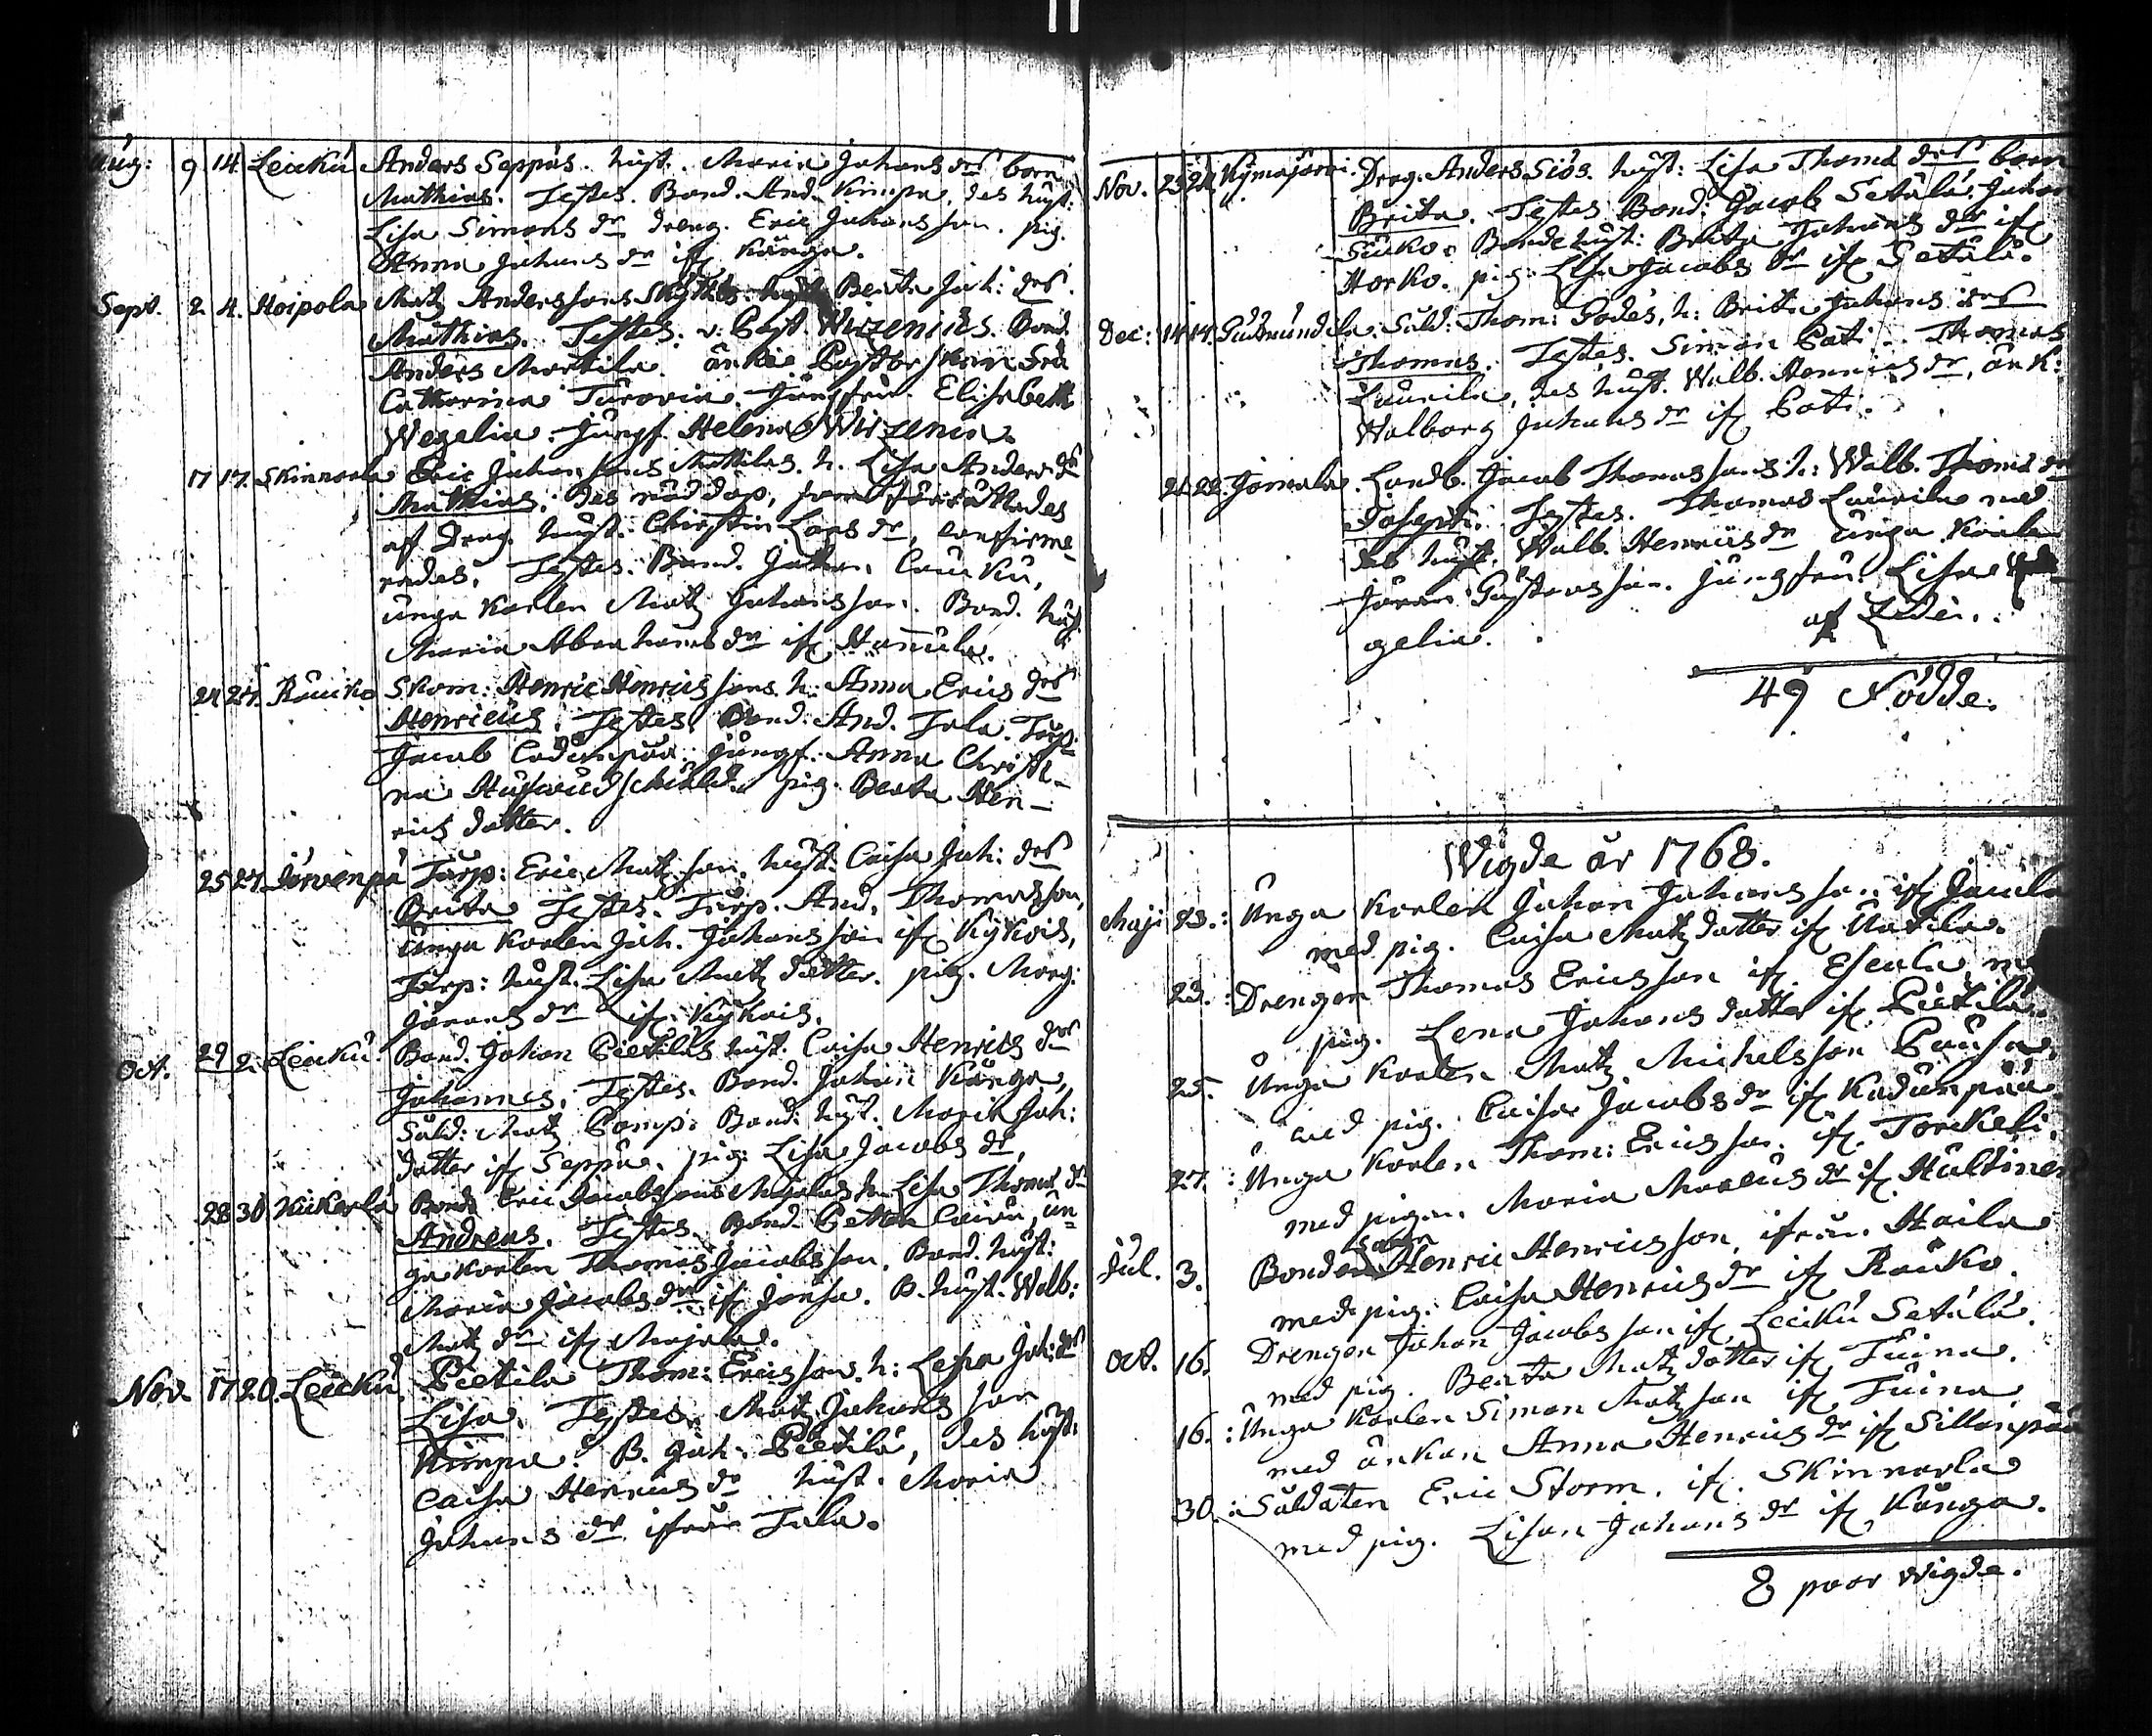 Aug: 9 14. Leuku Anders Seppäs. hust. Maria Johans drs barn
Mathias. Testes. Bond. And. Kimpa, des hust:
Lisa Simons dr dreng. Eric Johansson. pig.
Anna Johans dr ifr. Kånga.
Sept. 2. 4. Hoipola Matz Anderssons Beata Joh: drs.
Mathias. Testes. v. Past. Wirzenius. Bond.
Anders Mattila. änke Pastorskan Fru
Catharina Jungfru. Elisabeth
Wegelia. Jungf. Helena Wirzenia.
17 17. Skinnarla Eric Johanssons Mattilas. h. Lisa Anders dr
Mathias. Des nöddop, som förrättades
af Drag. hust. Christin Lars dr, confirme-
rades. Testes. Bond. Johan Leuku,
unga Karlen Matz Johansson. Bond. hust
Maria Abrahams dr ifr. Hannula.
24 27. Räuko Skom: Henric Henricssons. h: Anna Erics drs
Henricus. Testes. Bond. And. Tala. Torp.
Jacob Jungf. Anna Christi-
na pig. Beata Hen-
rics dotter.
25 27. Järvenpä Torp: Eric Matzson. hust. Caisa Joh: drs
Brita Testes. Torp. And. Thomasson,
Unga Karlen Joh. Johansson ifr.
Torp: hust. Lisa Matz dotter. pig. Marg:
Jörans dr ifr.
Oct. 29 2. Leuku. Bond. Johan Pietiläs hust. Caisa Henrics drs
Johannes. Testes. Bond. Johan Kånga,
Sold: Matz Bond: hust. Maria Joh:
dotter ifr. Seppä. pig: Lisa Jacobs dr,
28 30 Kukerla Bond. Eric Jacobssons h. Lisa Thoms dr
Andreas. Testes. Bond. Petter un-
ga karlen Thomas Jacobsson. Bond. hust:
Maria Jacobs dr ifr. Jausa. B. hust. Walb:
Matz dr ifr. Majala.
Nov. 17 20. Leuku. Pietilä Thom: Ericssons. h: Lisa Joh: drs
Lisa. Testes. Matz Johansson
Kimpa. B. Joh. Pietilä, des hust:
Caisa Henrics dr hust. Maria
Johans dr ifrån Tala.
Nov. 23 Kymajärvi. Drag. Anders Siös. hust: Lisa Thoms drs barn
Brita. Testes Bond: Jacob Setälä. Johan
Bonde hust: Brita Johans dr ifr.
Horko. pig: Lisa Jacobs dr ifr. Setälä.
Dec: 14 17. Gudmundila. Sold: Thom: Godes, h: Brita Johans drs
Thomas. Testes. Simon Thomas
Laurila, des hust. Walb. Henrics dr, änk:
Walborg Johans dr ifr.
Landb. Jacob Thomassons h: Walb. Thoms dr
Joseph. Testes. Thomas Laurila med
des hust. Walb. Henrics dr unga Karlen
Jöran Gustavsson. Jungfru. Lisa We-
gelia. af
49 Födde.
Wigde år 1768.
Maji 23.: Unga Karlen Johan Johansson ifr.
med pig. Caisa Matz dotter ifr. Uutila.
23.: Drengen Thomas Ericsson ifr.
pig. Lena Johans dotter ifr. Pietilä.
25. Unga Karlen Matz Michelsson
med pig. Caisa Jacobs dr ifr.
27.: Unga Karlen Thom: Ericsson. ifr. Torckeli.
med pigan. Maria Marcus dr ifr.
Jul. 3. Henric Henricsson, ifrån. Haila
med pig. Caisa Henrics dr ifr. Räuko.
Oct. 16. Drengen Johan Jacobsson ifr. Leuku Setälä.
med pig. Beata Matz dotter ifr. Tuina.
16.: Unga Karlen Simon Matzson ifr. Tuina
med änkan Anna Henrics dr ifr. Sillanpää
30.: Soldaten Eric Storm. ifr. Skinnarla
med pig. Lisan Johans dr ifr. Kånga.
8 paar wigde.